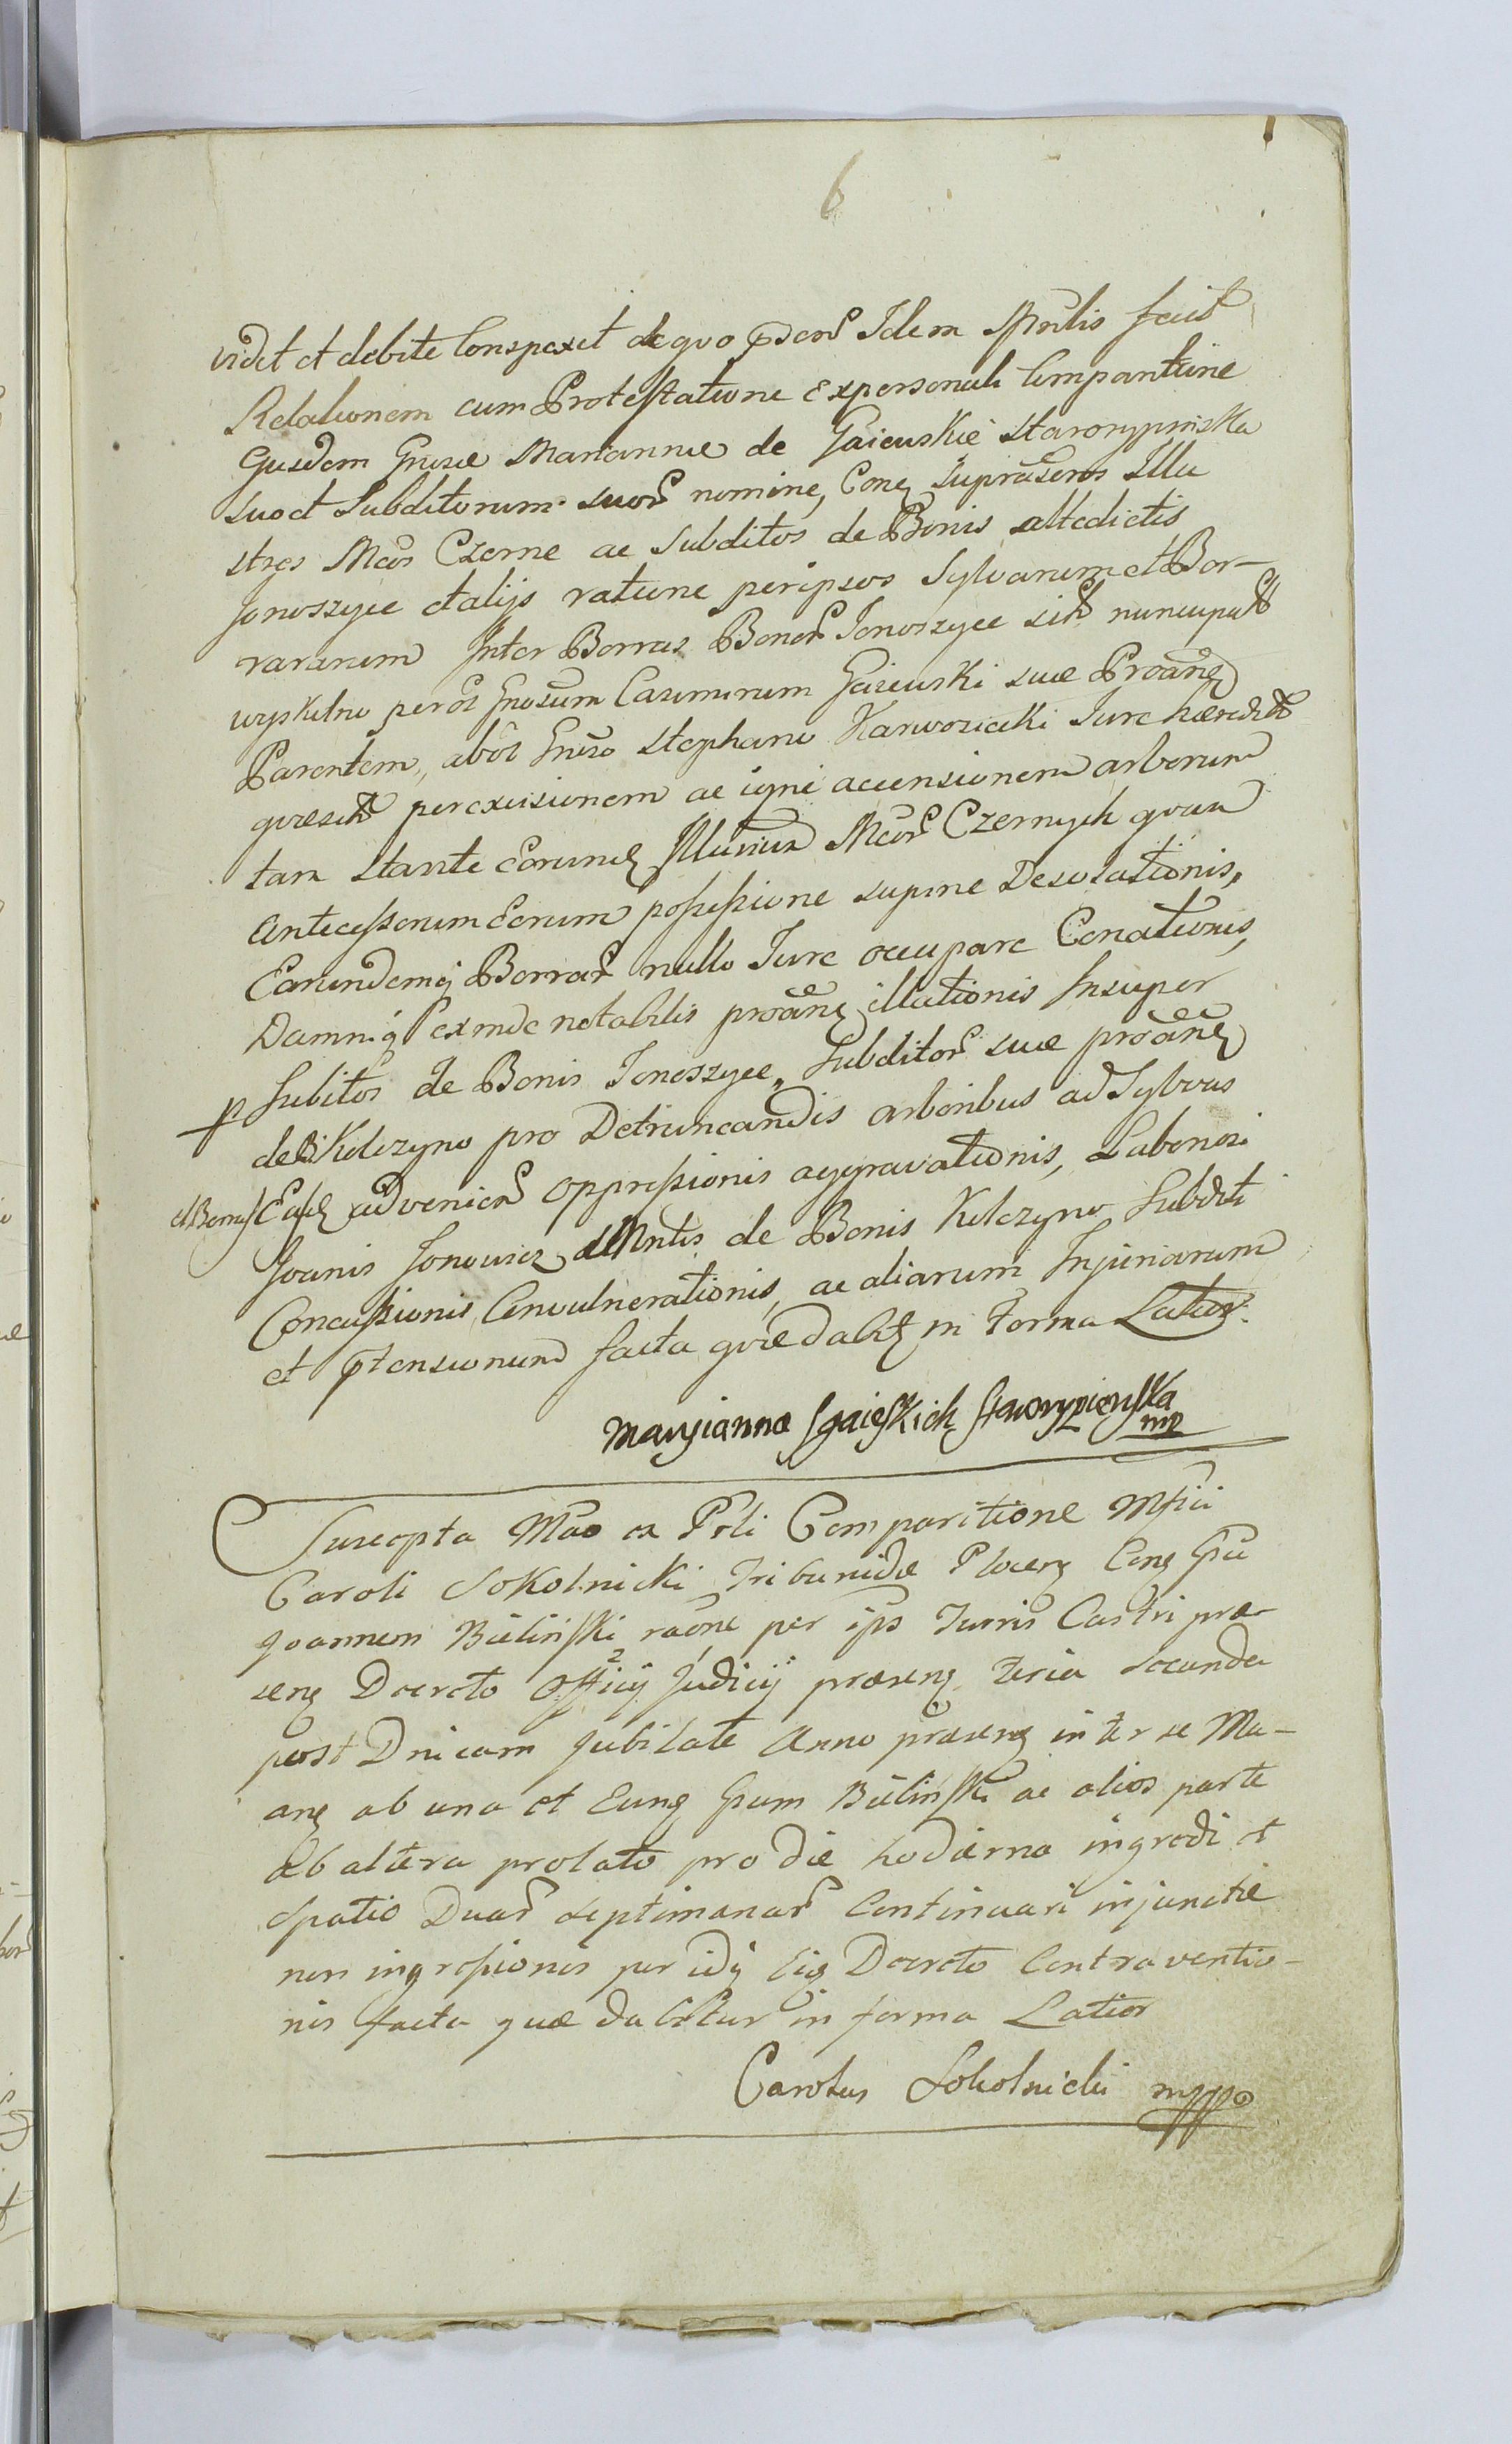 6
vidit et debite Conspexit de quo p̃dcnr̃ Idem Mrĩlis fecit
Relationem cum Protestatione Ex personali Comparitine
Ejusdem Gn̄sæ Marianne de Gaiewskie Starorypinska
suo et Subditorum suor̃ nomine, Conq̨ supra seros Illu
stres Mcos Czerne ac Subditos de Bonis alte dictis
Jonoszyce et alijs ratione per ipsos Sylvarum et Bor-
rararum Inter Borras Bonor̃ Jonoszyce sit̃ nuncupat̃
wyskitno per ol̃ Gn̄osum Casimirum Gaiewski suæ Proãnę
Parentem, ab ol̃ Gn̄so Stephano Karwosiecki Jure hæredit̃
quæsit̃ per excisionem ac igni accensionem arborum
tam stante Eorundę Illustrium Mcor̃ Czernych quam
Antecessorum Eorum possessione supine Desolationis,
Earundemq̨ Borrar̃ nullo Jure occupare Conationis,
Damniq̨ exinde notabilis proãnę illationis Insuper
p Subitos de Bonis Jonoszyce, Subditor̃ suæ proãnę
de B: Kelczyno pro Detruncandis arboribus ad Sylvas
et Borras Easd̨ advenien̄ oppressionis aggravationis, Laboriosi
Joannis Jonowicz de Bonis Kelczyno Subditi
Concussionis Convulnerationis, ac aliarum Injuriarum
et p̃tensionum facta quæ dabit̨ in Forma Latior:
Maryianna sgaieskich starorypienska
mp
Suscepta Mão ex Pr̃li Comparitione Mfici
Caroli Sokolnicki Tribunidæ Plocen̨ Con̨ Gn̄
Joannem Bielinski raõne per ips Juris Castri præ
sen̨ Decreto Officij Judicij præsen̨ Feria Secunda
post Dnicam Jubilate Anno præsen̨ inter se Ma-
an̨ ab una et Eunq̨ Gn̄um Bielinski ac alios parte
ab altera prolato pro die hodierna ingredi et
Spatio Duar̃ Septimanar̃ Continuari injunctæ
non ingressionis per idq̨ Eiq̨ Decreto Contraventio-
nis facta quæ dabitur in forma Latior
Carolus Sokolnicki mpp